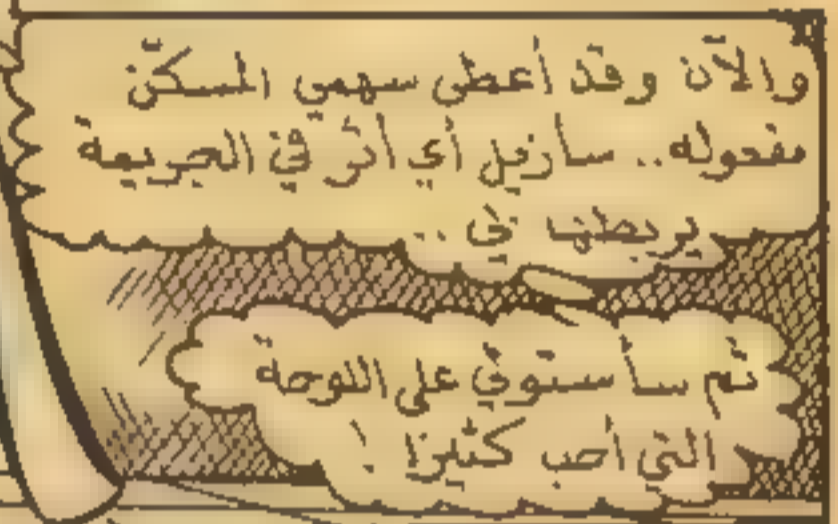 والآن وقد أعطى سهمي المسكّن
مفعوله.. سأزيل أي أثر في الجريمة
يربطها بي ..
ثم سأستوفي على اللوحة
التي أحب كثيرًا !